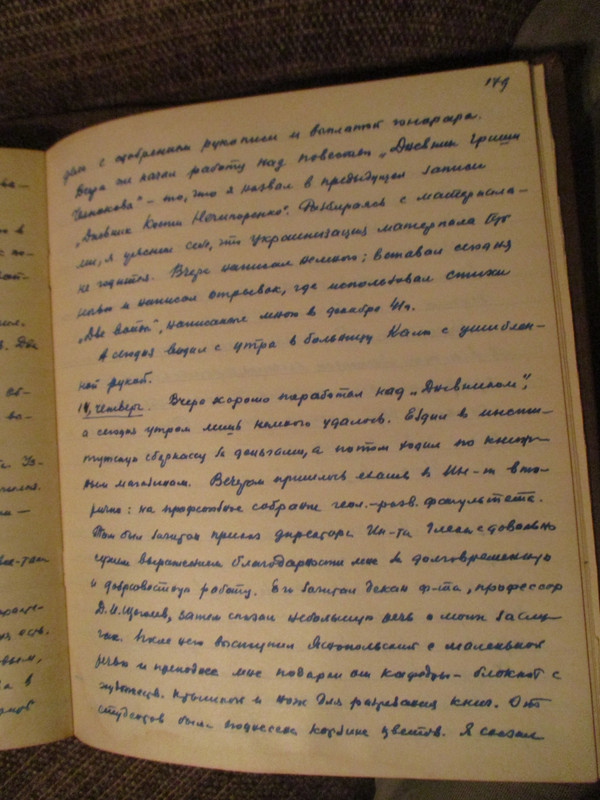 179
дат с одобрением рукописи и выплатой гонорара.
Вчера же начал работу над повестью „Дневник Гриши
– то, что я назвал в предыдущей записи
„Дневник Кости Ничипоренко". Разбираясь с материала-
ми, я уяснил себе, что украинизация материала тут
не годится. Вчера написал немного; вставал сегодня
ночью и написал отрывок, где использовал стихи
„Две войны", написанные мною в декабре 41г.
А сегодня водил с утра в больницу Калю с ушиблен-
ной рукой.
четверг. Вчера хорошо поработал над „Дневником",
а сегодня утром лишь немного удалось. Ездил в инсти-
тутскую сберкассу за деньгами, а потом ходил по книж-
ным магазинам. Вечером пришлось ехать в Ин-т вто-
рично: на профсоюзное собрание геол.-разв. факультета.
Там был зачитан приказ директора Ин-та с довольно
сухим выражением благодарности мне за долговременную
и добросовестную работу. Его зачитал декан ф-та, профессор
Д.И. затем сказал небольшую речь о моих заслу-
гах. После него выступил Яснопольский с маленькой
речью и преподнес мне подарки от кафедры – блокнот с
художеств. крышкой и нож для разрезания книг. От
студентов была поднесена корзина цветов. Я сказал